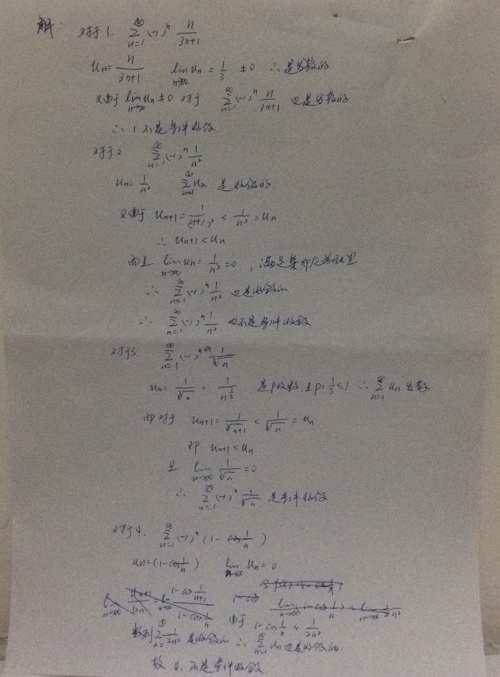 解: 对于1. ∑_{n=1}^{∞} (-1)^n n/(3n+1)
u_n = n/(3n+1)  lim_{n→∞} u_n = 1/3 ≠ 0 ∴是发散的
又由于 lim_{n→∞} u_n ≠ 0 对于 ∑_{n=1}^{∞} (-1)^n n/(3n+1) 也是发散的
∴ 1 不是条件收敛
对于2 ∑_{n=1}^{∞} (-1)^n 1/n²
u_n = 1/n²  ∑_{n=1}^{∞} u_n 是收敛的.
又由于 u_{n+1} = 1/(n+1)² < 1/n² = u_n
∴ u_{n+1} < u_n
而且 lim_{n→∞} u_n = 1/n² = 0, 满足莱布尼兹定理
∴ ∑_{n=1}^{∞} (-1)^n 1/n² 也是收敛的
∴ ∑_{n=1}^{∞} (-1)^n 1/n² 也不是条件收敛
对于3 ∑_{n=1}^{∞} (-1)^n 1/∛n
u_n = 1/∛n = 是p级数, 且 p = 1/3 < 1 ∴ ∑_{n=1}^{∞} u_n 发散
而对于 u_{n+1} = 1/∛(n+1) < 1/∛n = u_n
即 u_{n+1} < u_n
且 lim_{n→∞} 1/∛n = 0
∴ ∑_{n=1}^{∞} (-1)^n 1/∛n 是条件收敛
对于4. ∑_{n=1}^{∞} (-1)^n (1 - cos 1/n)
u_n = (1 - cos 1/n)  lim_{n→∞} u_n = 0
由于 1 - cos 1/n ~ 1/2n²
级数 ∑_{n=1}^{∞} 1/2n² 是收敛的 ∴ ∑_{n=1}^{∞} u_n 也是收敛的
故 4. 不是条件收敛.